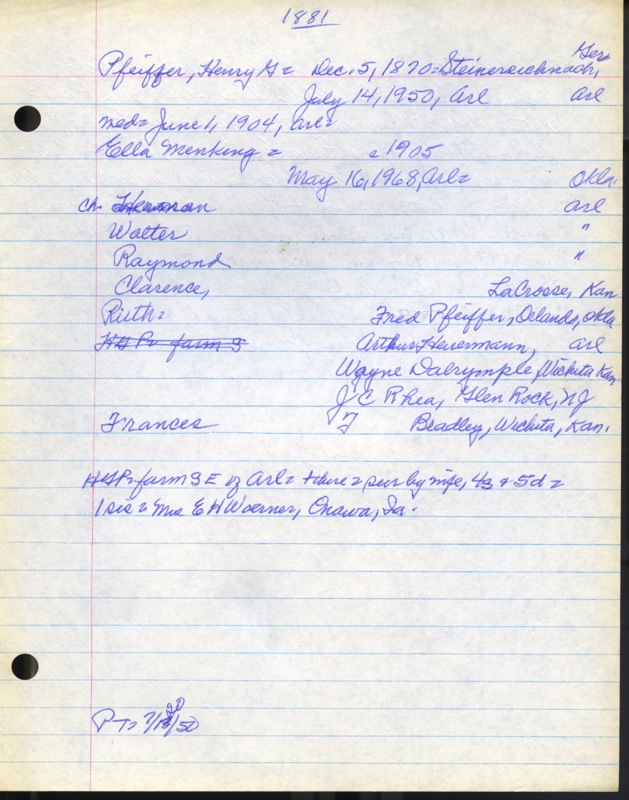 1881
Pfeiffer, Henry G = Dec. 5, 1870 = Steinereichnach, Ger
July 14, 1950, Arl Arl
med = June 1, 1904, Arl =
Ella Menking = c 1905
May 16, 1968, Arl = Okla.
Ch. Herman Arl
Walter "
Raymond "
Clarence, LaCrosse, Kan
Ruth = Fred Pfeiffer, Orlando, Okla
HGP farm S Arthur Heuermann, Arl
Wayne Dalrymple, Wichita Kan
J C Rhea, Glen Rock, NJ
Frances F Bradley, Wichita, Kan.
HGP farm S E of Arl = there = sur by wife, 4s + 5d =
1 sis = Mrs E H Woerner, Onawa, Ia.
PT = 7/20/50